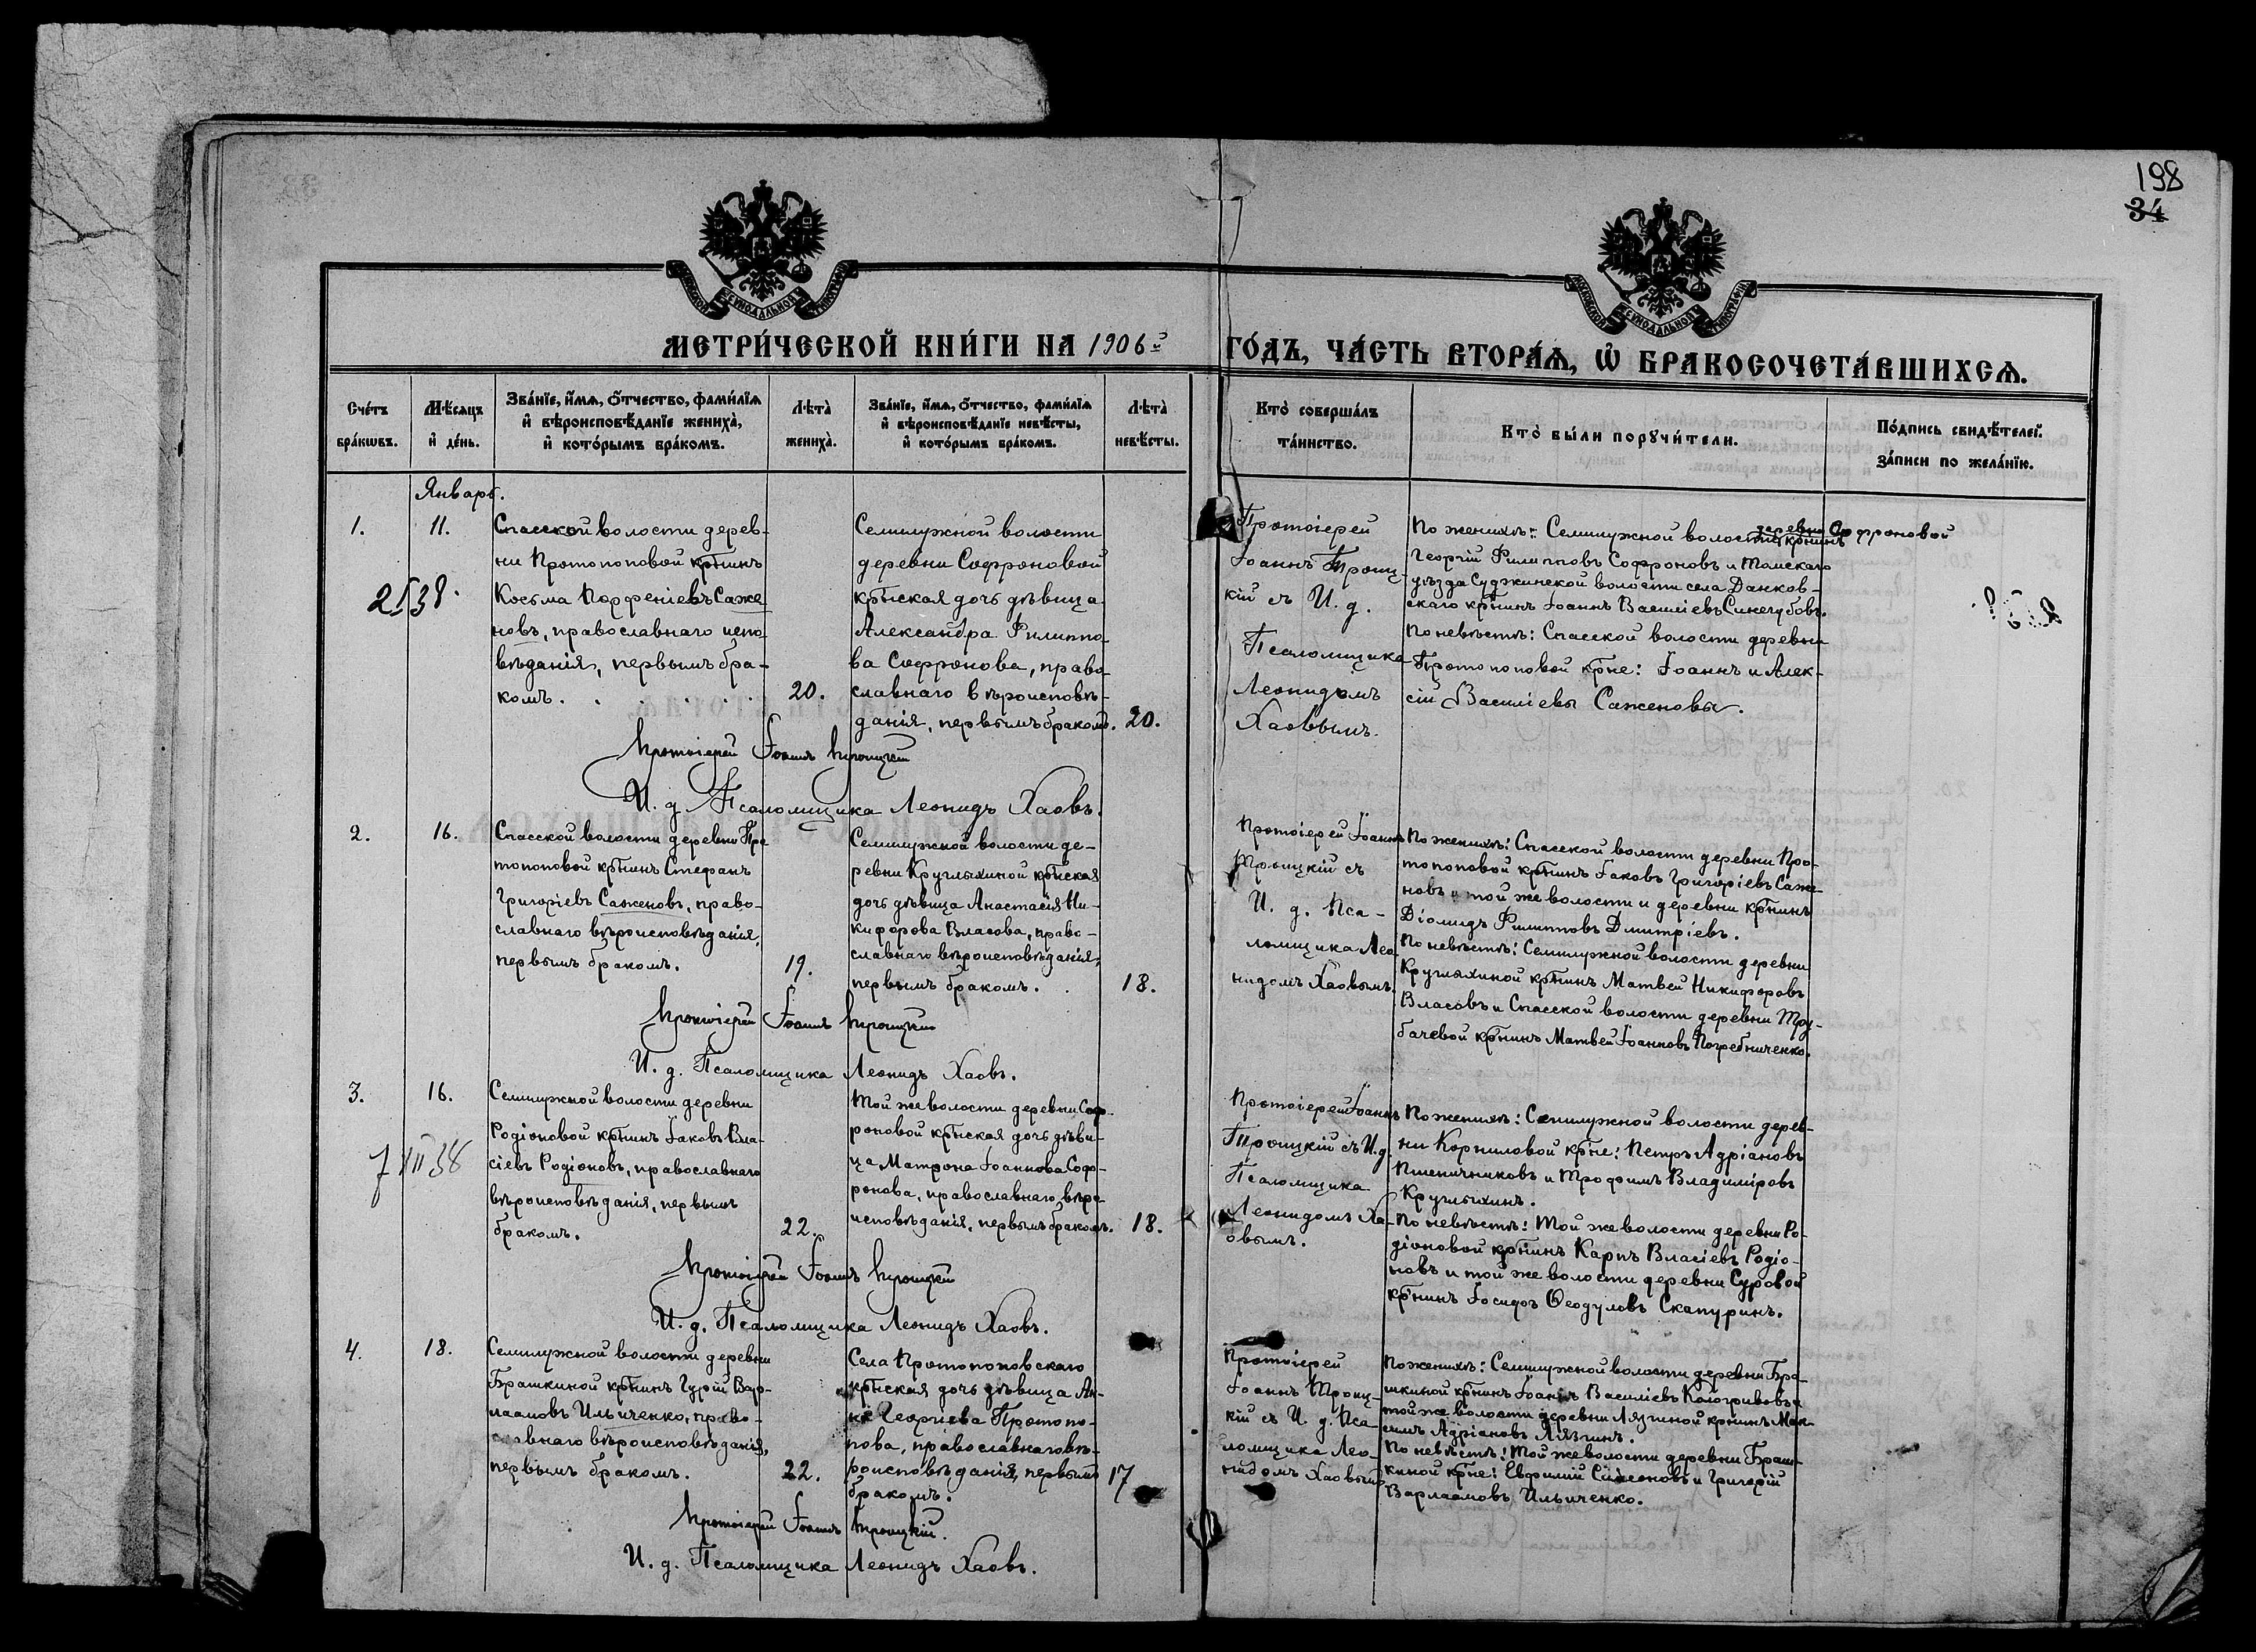 198
34
МОСКОВСКОЙ СѴНОДАЛЬНОЙ ТИПОГРАФІИ
МОСКОВСКОЙ СѴНОДАЛЬНОЙ ТИПОГРАФІИ
МЕТРИ́ЧЕСКОЙ КНИ́ГИ НА 1906й ГО́ДЪ, ЧА́СТЬ ВТОРА́Ѧ, Ѡ҆ БРАКОСОЧЕТА́ВШИХСѦ.
Сче́тъ бра́кѡвъ.
Мѣ́сѧцъ и҆ де́нь.
Зва́нїе, и҆́мѧ, ѻ҆́тчество, фами́лїѧ и҆ вѣроисповѣ́данїе жениха̀, и҆ кото́рымъ бра́комъ.
Лѣта̀ жениха̀.
Зва́нїе, и҆́мѧ, ѻ҆́тчество, фами́лїѧ и҆ вѣроисповѣ́данїе невѣ́сты, и҆ кото́рымъ бра́комъ.
Лѣта̀ невѣ́сты.
Кто̀ соверша́лъ та́инство.
Кто̀ бы́ли порꙋчи́тели.
По́дпись свидѣ́телей за́писи по жела́нїю.
Январь.
1.
11.
2 I 38.
Спасской волости дерев-
ни Протопоповой кр҃нинъ
Косьма Парфеніевъ Саже
новъ, православнаго испо
вѣданія, первымъ бра-
комъ.
20.
Семилужной волости
деревни Софроновой
кр҃нская дочь дѣвица
Александра Филиппо-
ва Софронова, право-
славнаго вѣроисповѣ-
данія, первымъ бракомъ.
20.
Протоіерей
Іоаннъ Троиц-
кій съ И. д.
Псаломщика
Леонидомъ
Хаовымъ.
По женихѣ: Семилужной волости деревни Софроновой кр҃нинъ
Георгій Филипповъ Софроновъ и Томскаго
уѣзда Судженской волости села Данков-
скаго кр҃нинъ Іоаннъ Василіевъ Синегубовъ.
По невѣстѣ: Спасской волости деревни
Протопоповой кр҃не: Іоаннъ и Алек-
сій Василіевы Саженовы.
Протоіерей Іоаннъ Троицкій
И. д. Псаломщика Леонидъ Хаовъ.
2.
16.
Спасской волости деревни Про
топоповой кр҃нинъ Стефанъ
Григоріевъ Саженовъ, право-
славнаго вѣроисповѣданія,
первымъ бракомъ.
19.
Семилужной волости де-
ревни Круглыхиной кр҃нская
дочь дѣвица Анастасія Ни-
кифорова Власова, право-
славнаго вѣроисповѣданія,
первымъ бракомъ.
18.
Протоіерей Іоаннъ
Троицкій съ
И. д. Пса-
ломщика Лео
нидомъ Хаовымъ.
По женихѣ: Спасской волости деревни Про-
топоповой кр҃нинъ Іаковъ Григоріевъ Саже
новъ и той же волости и деревни кр҃нинъ
Діомидъ Филипповъ Дмитріевъ.
По невѣстѣ: Семилужной волости деревни
Круглыхиной кр҃нинъ Матвей Никифоровъ
Власовъ и Спасской волости деревни Тру-
бачевой кр҃нинъ Матвей Іоанновъ Погребниченко.
Протоіерей Іоаннъ Троицкій
И. д. Псаломщика Леонидъ Хаовъ.
3.
16.
7 XII 38
Семилужной волости деревни
Родіоновой кр҃нинъ Іаковъ Вла-
сіевъ Родіоновъ, православнаго
вѣроисповѣданія, первымъ
бракомъ.
22.
Той же волости деревни Соф-
роновой кр҃нская дочь дѣви-
ца Матрона Іоаннова Соф-
ронова, православнаго вѣро
исповѣданія, первымъ бракомъ.
18.
Протоіерей Іоаннъ
Троицкій съ И. д.
Псаломщика
Леонидомъ Ха-
овымъ.
По женихѣ: Семилужной волости дерев-
ни Корниловой кр҃не: Петръ Адріановъ
Пшеничниковъ и Трофимъ Владиміровъ
Круглыхинъ.
По невѣстѣ: Той же волости деревни Ро-
діоновой кр҃нинъ Карпъ Власіевъ Родіо-
новъ и той же волости деревни Суровой
кр҃нинъ Іосифъ Ѳеодуловъ Скапуринъ.
Протоіерей Іоаннъ Троицкій
И. д. Псаломщика Леонидъ Хаовъ.
4.
18.
Семилужной волости деревни
Брашкиной кр҃нинъ Гурій Вар-
лаамовъ Ильиченко, право-
славнаго вѣроисповѣданія,
первымъ бракомъ.
22.
Села Протопоповскаго
кр҃нская дочь дѣвица Ан-
на Георгіева Протопо-
пова, православнаго вѣ-
роисповѣданія, первымъ
бракомъ.
17
Протоіерей
Іоаннъ Троиц-
кій съ И. д. Пса-
ломщика Лео-
нидомъ Хаовымъ
По женихѣ: Семилужной волости деревни Бра-
шкиной кр҃нинъ Іоаннъ Василіевъ Когогривовъ и
той же волости деревни Лязгиной кр҃нинъ Мак-
симъ Адріановъ Лязгинъ.
По невѣстѣ: Той же волости деревни Браш-
киной кр҃не: Евфимій Симеоновъ и Григорій
Варлаамовъ Ильиченко.
Протоіерей Іоаннъ Троицкій.
И. д. Псаломщика Леонидъ Хаовъ.